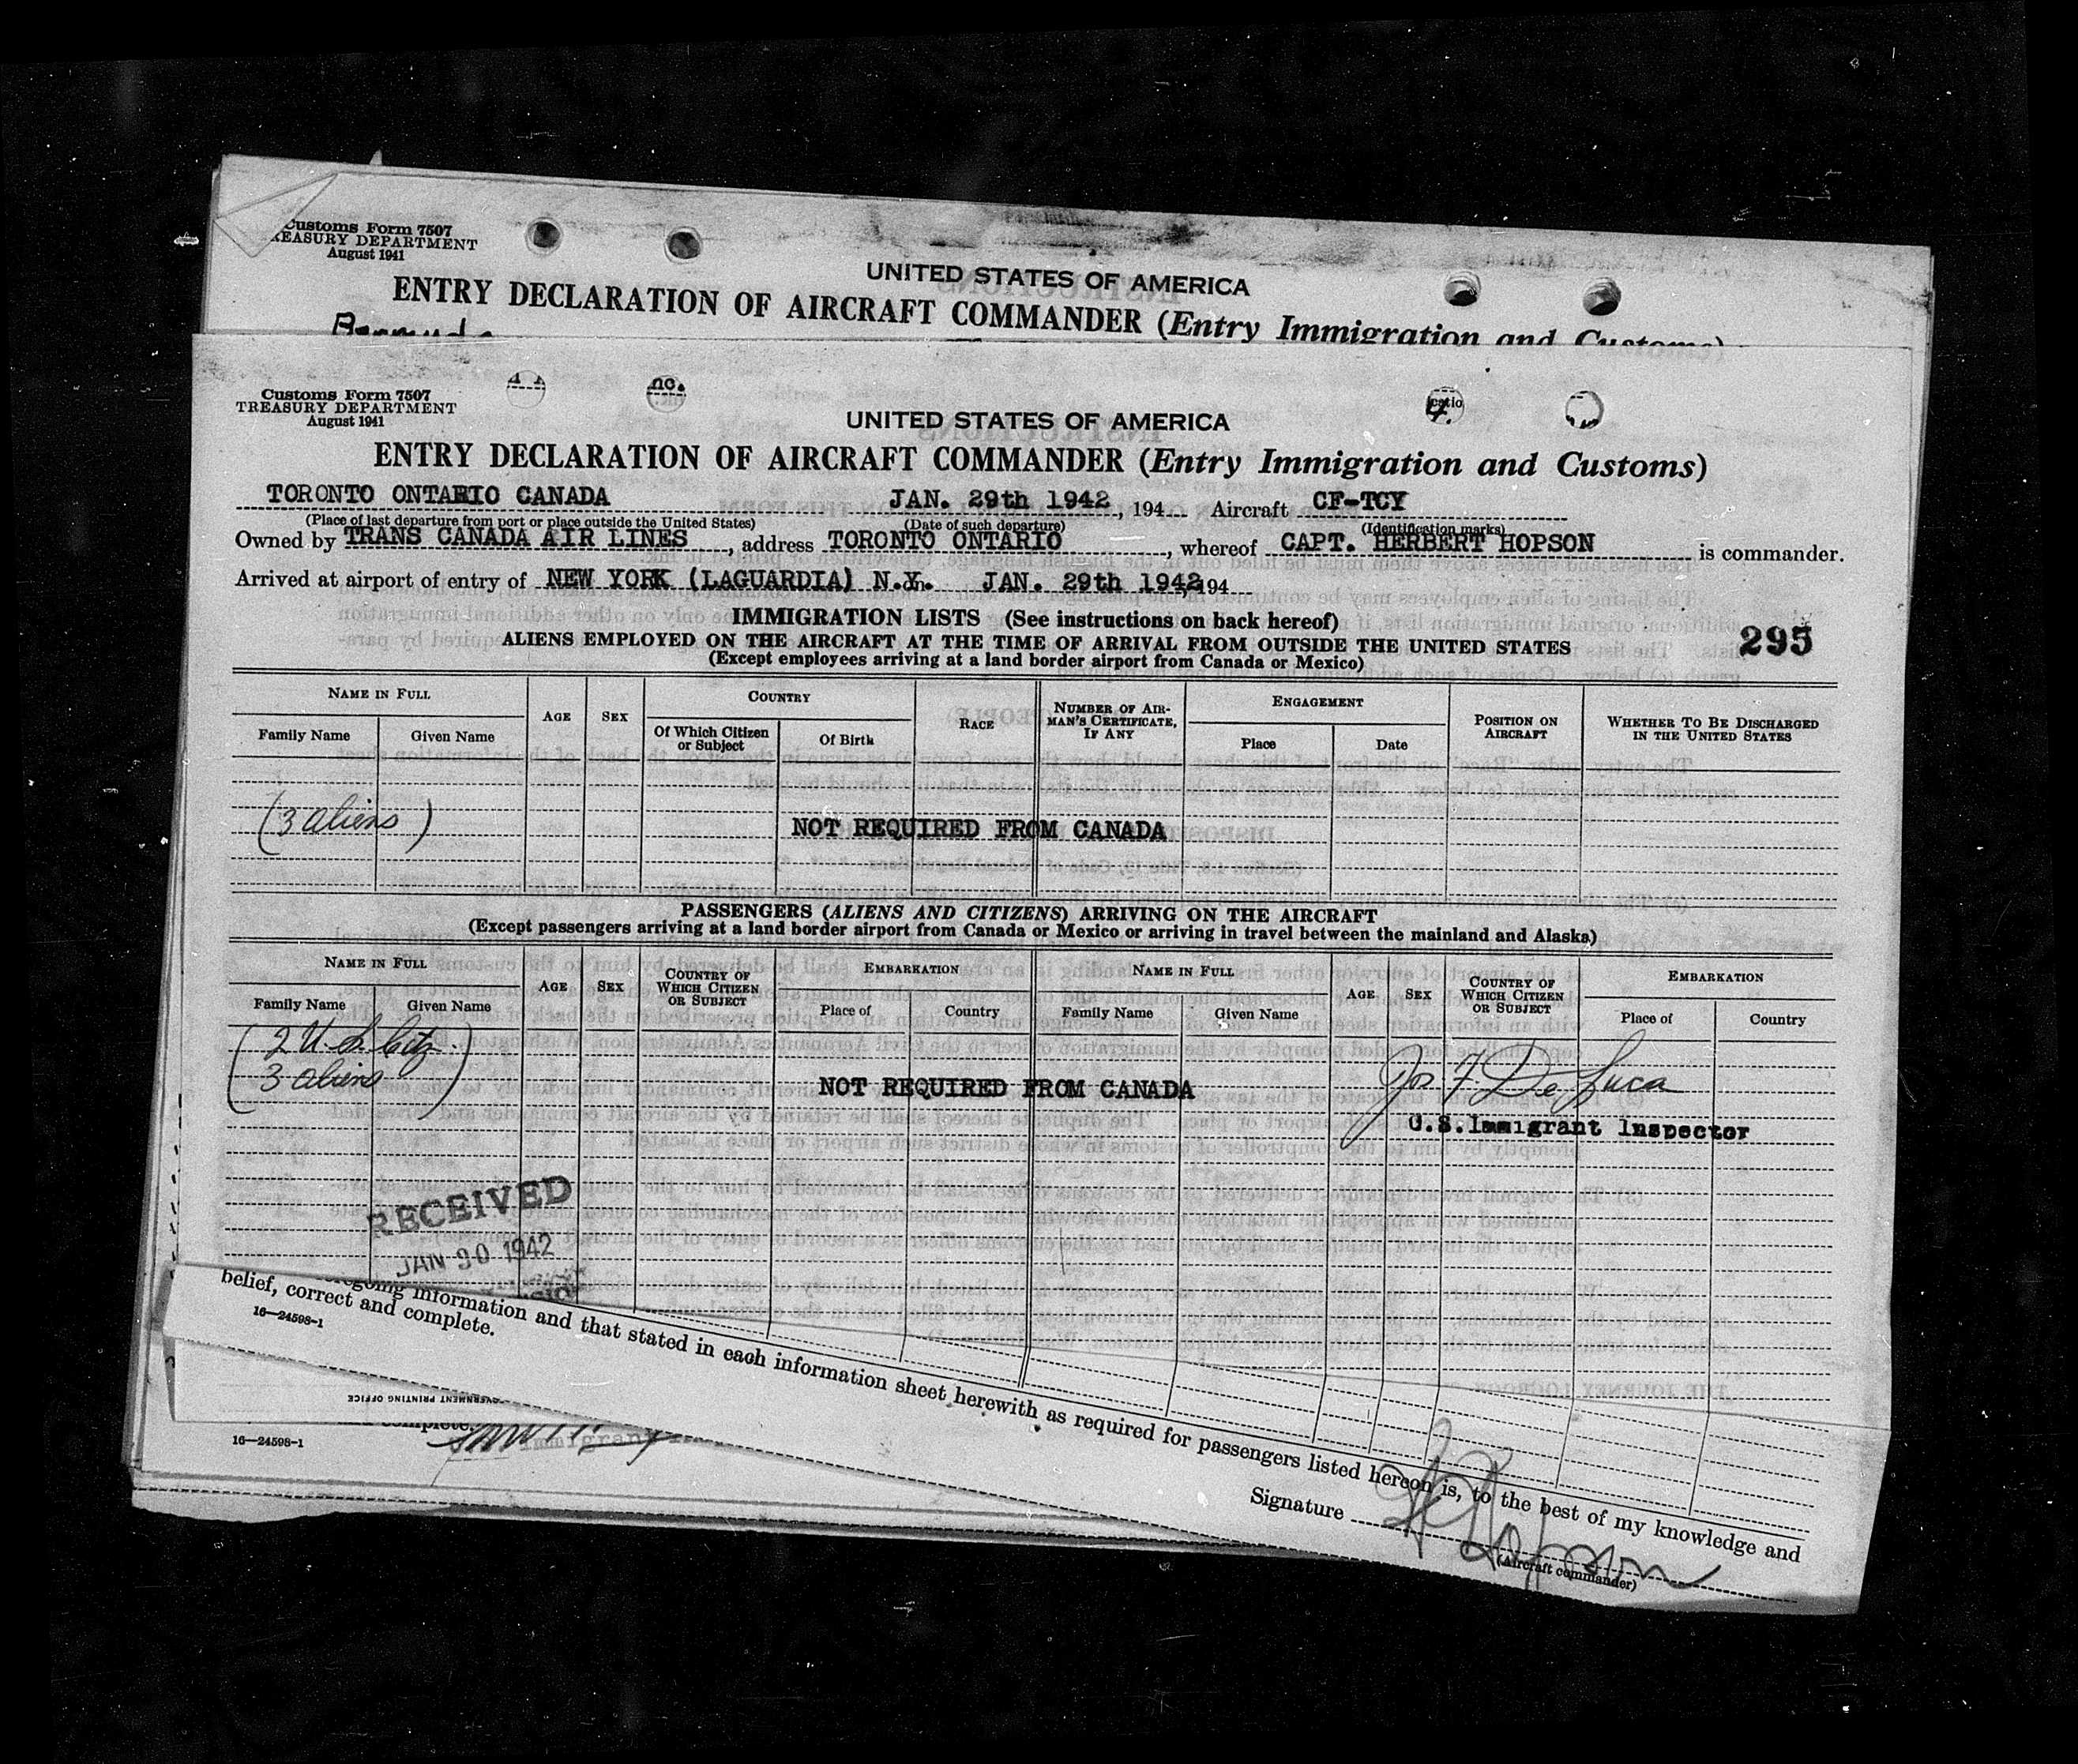 Customs Form 7507
TREASURY DEPARTMENT
August 1941
UNITED STATES OF AMERICA
ENTRY DECLARATION OF AIRCRAFT COMMANDER (Entry Immigration and Customs)
Customs Form 7507
TREASURY DEPARTMENT
August 1941
UNITED STATES OF AMERICA
ENTRY DECLARATION OF AIRCRAFT COMMANDER (Entry Immigration and Customs)
TORONTO ONTARIO CANADA JAN. 29th 1942, 194 Aircraft CF-TCY
(Place of last departure from port or place outside the United States) (Date of such departure) (Identification marks)
Owned by TRANS CANADA AIR LINES, address TORONTO ONTARIO, whereof CAPT. HERBERT HOPSON is commander.
Arrived at airport of entry of NEW YORK (LAGUARDIA) N.Y. JAN. 29th 1942, 194
IMMIGRATION LISTS (See instructions on back hereof)
ALIENS EMPLOYED ON THE AIRCRAFT AT THE TIME OF ARRIVAL FROM OUTSIDE THE UNITED STATES
295
(Except employees arriving at a land border airport from Canada or Mexico)
NAME IN FULL AGE SEX COUNTRY RACE NUMBER OF AIRMAN'S CERTIFICATE, IF ANY ENGAGEMENT POSITION ON AIRCRAFT WHETHER TO BE DISCHARGED IN THE UNITED STATES
Family Name Given Name Of Which Citizen or Subject Of Birth Place Date
(3 aliens)
NOT REQUIRED FROM CANADA
PASSENGERS (ALIENS AND CITIZENS) ARRIVING ON THE AIRCRAFT
(Except passengers arriving at a land border airport from Canada or Mexico or arriving in travel between the mainland and Alaska)
NAME IN FULL AGE SEX COUNTRY OF WHICH CITIZEN OR SUBJECT EMBARKATION NAME IN FULL AGE SEX COUNTRY OF WHICH CITIZEN OR SUBJECT EMBARKATION
Family Name Given Name Place of Country Family Name Given Name Place of Country
(2 U.S. Citz.
3 aliens)
NOT REQUIRED FROM CANADA
Jos F. De Luca
U.S. Immigrant Inspector
RECEIVED
JAN 30 1942
going information and that stated in each information sheet herewith as required for passengers listed hereon is, to the best of my knowledge and
belief, correct and complete.
16—24598-1
Signature H Hopson
(Aircraft commander)
GOVERNMENT PRINTING OFFICE
complete.
16—24598-1